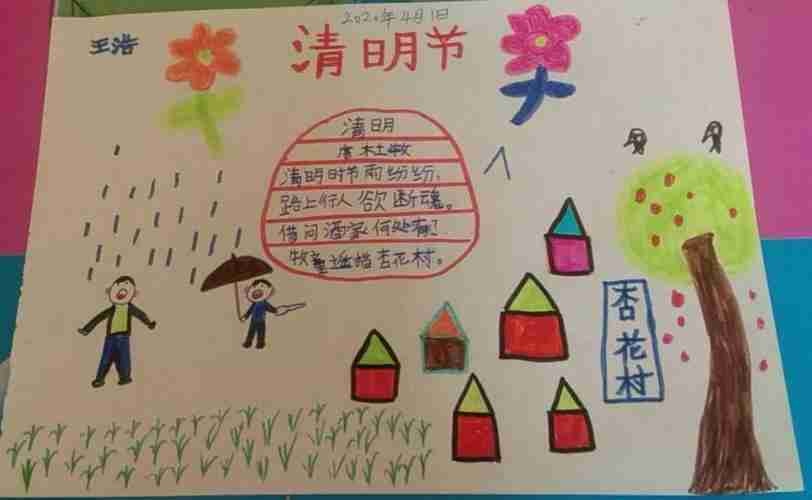 2020年4月1日
王浩
清明节
清明
唐 杜牧
清明时节雨纷纷,
路上行人欲断魂。
借问酒家何处有?
牧童遥指杏花村。
杏花村